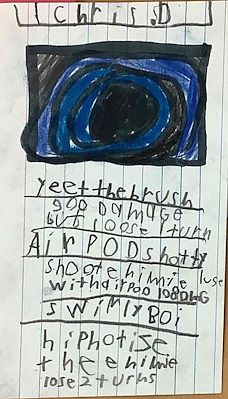 Chris.D
yeet the brush
900 Damage
but loose 1 turn
AirPOD shotty
shoot ehimie use
with airPOD 108DMG
swirly Boi
hiphotise
the ehimie
lose 2 turns